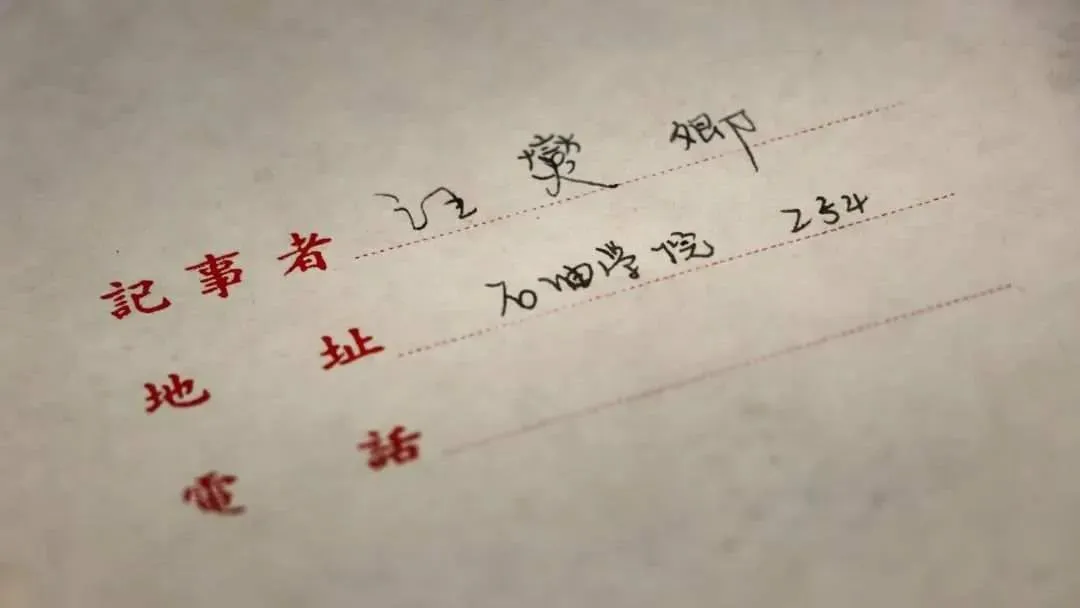 記事者 汪燮卿
地址 石油学院
電話